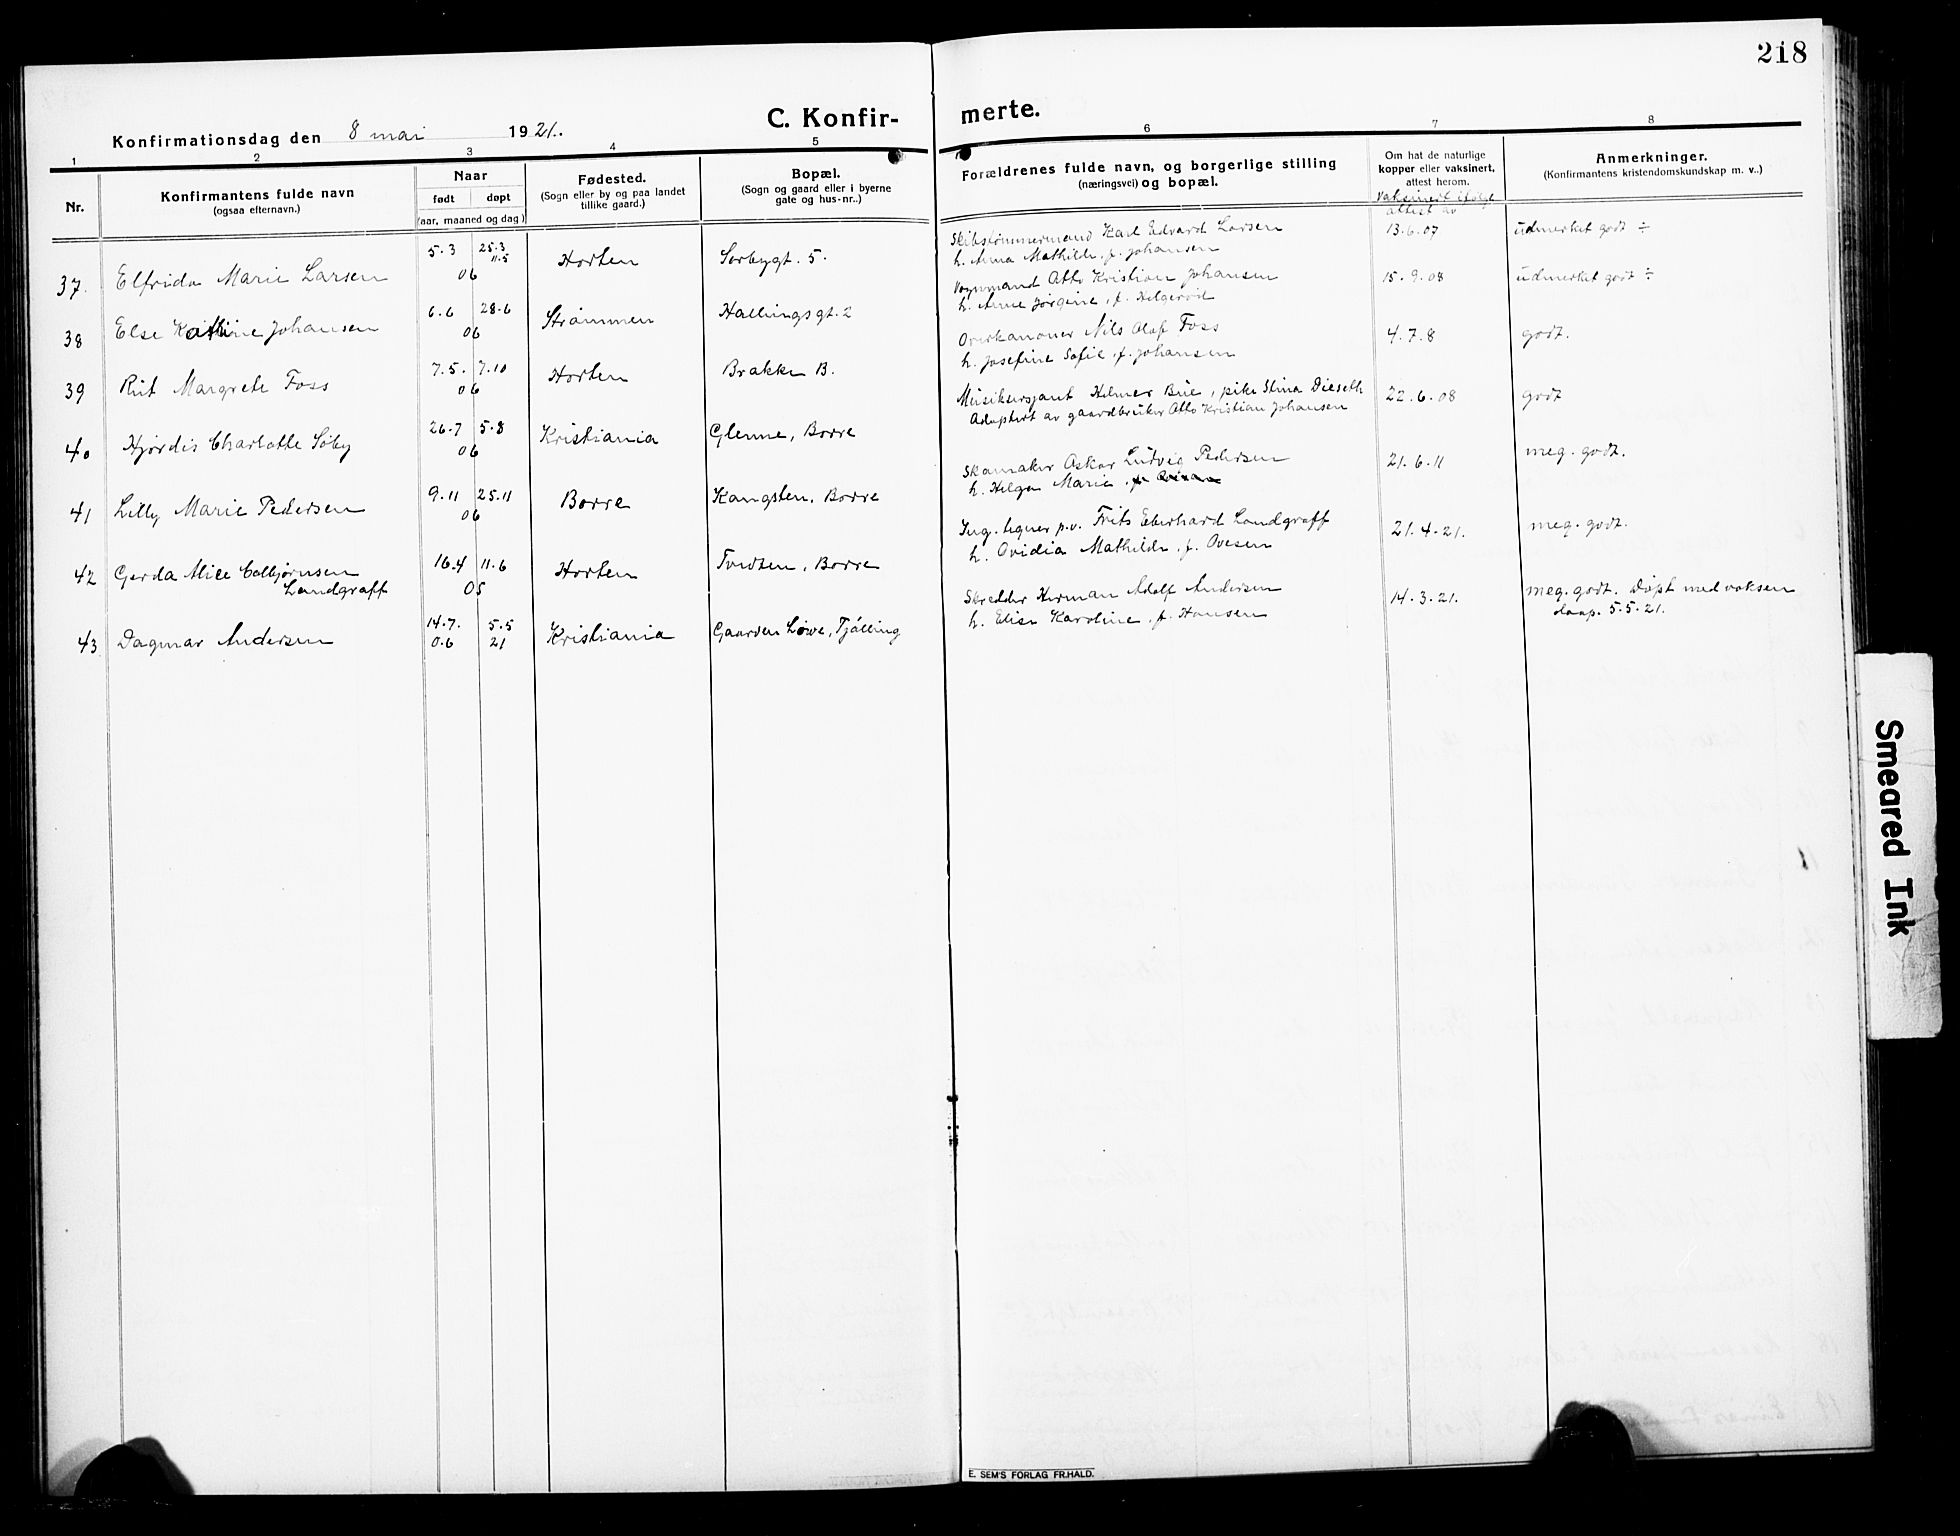 218
Konfirmationsdag den 8 mai 1921.
C. Konfir-
merte.
1 2 3 4 5 6 7 8
Nr.
Konfirmantens fulde navn
(ogsaa efternavn.)
Naar
født døpt
(aar, maaned og dag)
Fødested.
(Sogn eller by og paa landet
tillike gaard.)
Bopæl.
(Sogn og gaard eller i byerne
gate og hus-nr..)
Forældrenes fulde navn, og borgerlige stilling
(næringsvei) og bopæl.
Om hat de naturlige
kopper eller vaksinert,
attest herom.
Vaksinert ifølge
attest av
Anmerkninger.
(Konfirmantens kristendomskundskap m. v..)
37. Elfrida Marie Larsen 5.3 25.3 11.5 06 Horten Sorbygt. 5.
Skibstømmermand Karl Edvard Larsen 13.6.07 udmerket godt ÷
h. Anna Mathilde, f. Johansen
38 Else Katrine Johansen 6.6 28.6 06 Strømmen Hallingsgt. 2
Vognmand Otto Kristian Johansen 15.9.08 udmerket godt ÷
h. Anne Jørgine, f. Helgerød
39 Rut Margrete Foss 7.5. 7.10 06 Horten Brakke B.
Overkanoner Nils Olaf Foss 4.7.8 godt.
h. Josefine Sofie, f. Johansen
40 Hjørdis Charlotte Søby 26.7 5.8 06 Kristiania Glenne, Borre
Musikersjant Helmer Bue, pike Stina Dieseth 22.6.08 godt
Adoptert av gaardbruker Otto Kristian Johansen
41 Lilly Marie Pedersen 9.11 25.11 06 Borre Kangsten, Borre
Skomaker Oskar Ludvig Pedersen 21.6.11 meg. godt.
h. Helga Marie
42 Gerda Alice Colbjørnsen
Landgraff 16.4 11.6 05 Horten Tvedten, Borre
Ing. tegner p.v. Frits Eberhard Landgraff 21.4.21. meg. godt.
h. Ovidia Mathilde, f. Ovesen
43 Dagmar Andersen 14.7. 0.6 5.5 21 Kristiania Gaarden Løwe, Tjølling
Skredder Herman Adolf Andersen 14.3.21. meg. godt. Døpt med voksen
h. Elise Karoline, f. Hansen daap. 5.5.21.
Smeared Ink
E. SEM'S FORLAG FR.HALD.